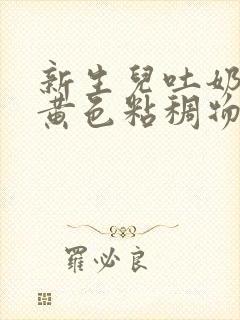 新生兒吐奶
黃色粘稠物
羅必良